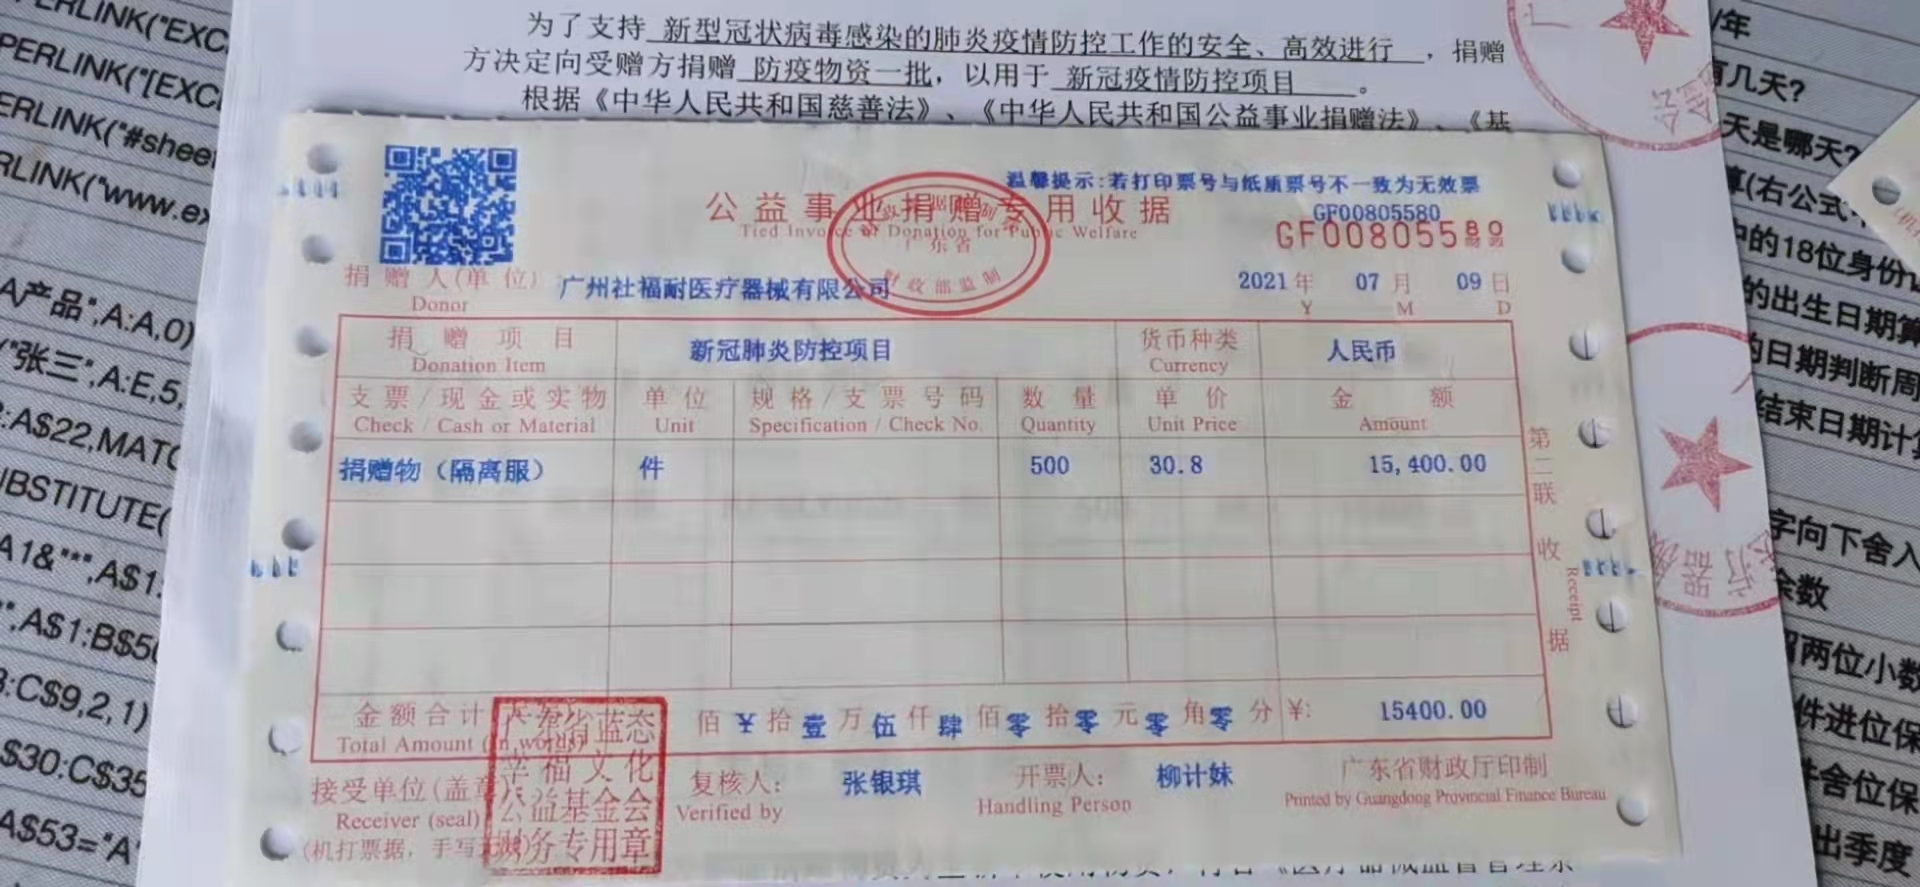 为了支持 新型冠状病毒感染的肺炎疫情防控工作的安全、高效进行 ，捐赠
方决定向受赠方捐赠 防疫物资一批，以用于 新冠疫情防控项目 。
根据《中华人民共和国慈善法》、《中华人民共和国公益事业捐赠法》、《基
温馨提示:若打印票号与纸质票号不一致为无效票
公益事业捐赠专用收据
GF00805580
Tied Invoice of Donation for Public Welfare
GF00805580
广东省
财政部监制
捐赠人(单位) 广州社福耐医疗器械有限公司 2021 年 07 月 09 日
Donor Y M D
捐赠项目 新冠肺炎防控项目 货币种类 人民币
Donation Item Currency
支票/现金或实物 单位 规格/支票号码 数量 单价 金额
Check / Cash or Material Unit Specification / Check No. Quantity Unit Price Amount
捐赠物（隔离服） 件 500 30.8 15,400.00
第二联 收据
Receipt
金额合计 佰 ¥ 拾 壹 万 伍 仟 肆 佰 零 拾 零 元 零 角 零 分 ¥: 15400.00
Total Amount (in words)
接受单位(盖章) 复核人: 张银琪 开票人: 柳计妹 广东省财政厅印制
Receiver (seal) Verified by Handling Person Printed by Guangdong Provincial Finance Bureau
(机打票据，手写
广东省蓝态
幸福文化
公益基金会
财务专用章
PERLINK("EXC
PERLINK("[EXC
ERLINK("#sheet
RLINK("www.ex
A产品",A:A,0)
("张三",A:E,5,
:A$22,MATC
UBSTITUTE(
A1&"*",A$1:
",A$1:B$50
:C$9,2,1)
$30:C$35
A$53="A"
/年
有几天?
天是哪天?
算(右公式
中的18位身份
的出生日期算
的日期判断周
结束日期计
字向下舍入
余数
留两位小数
件进位保
件舍位保
出季度